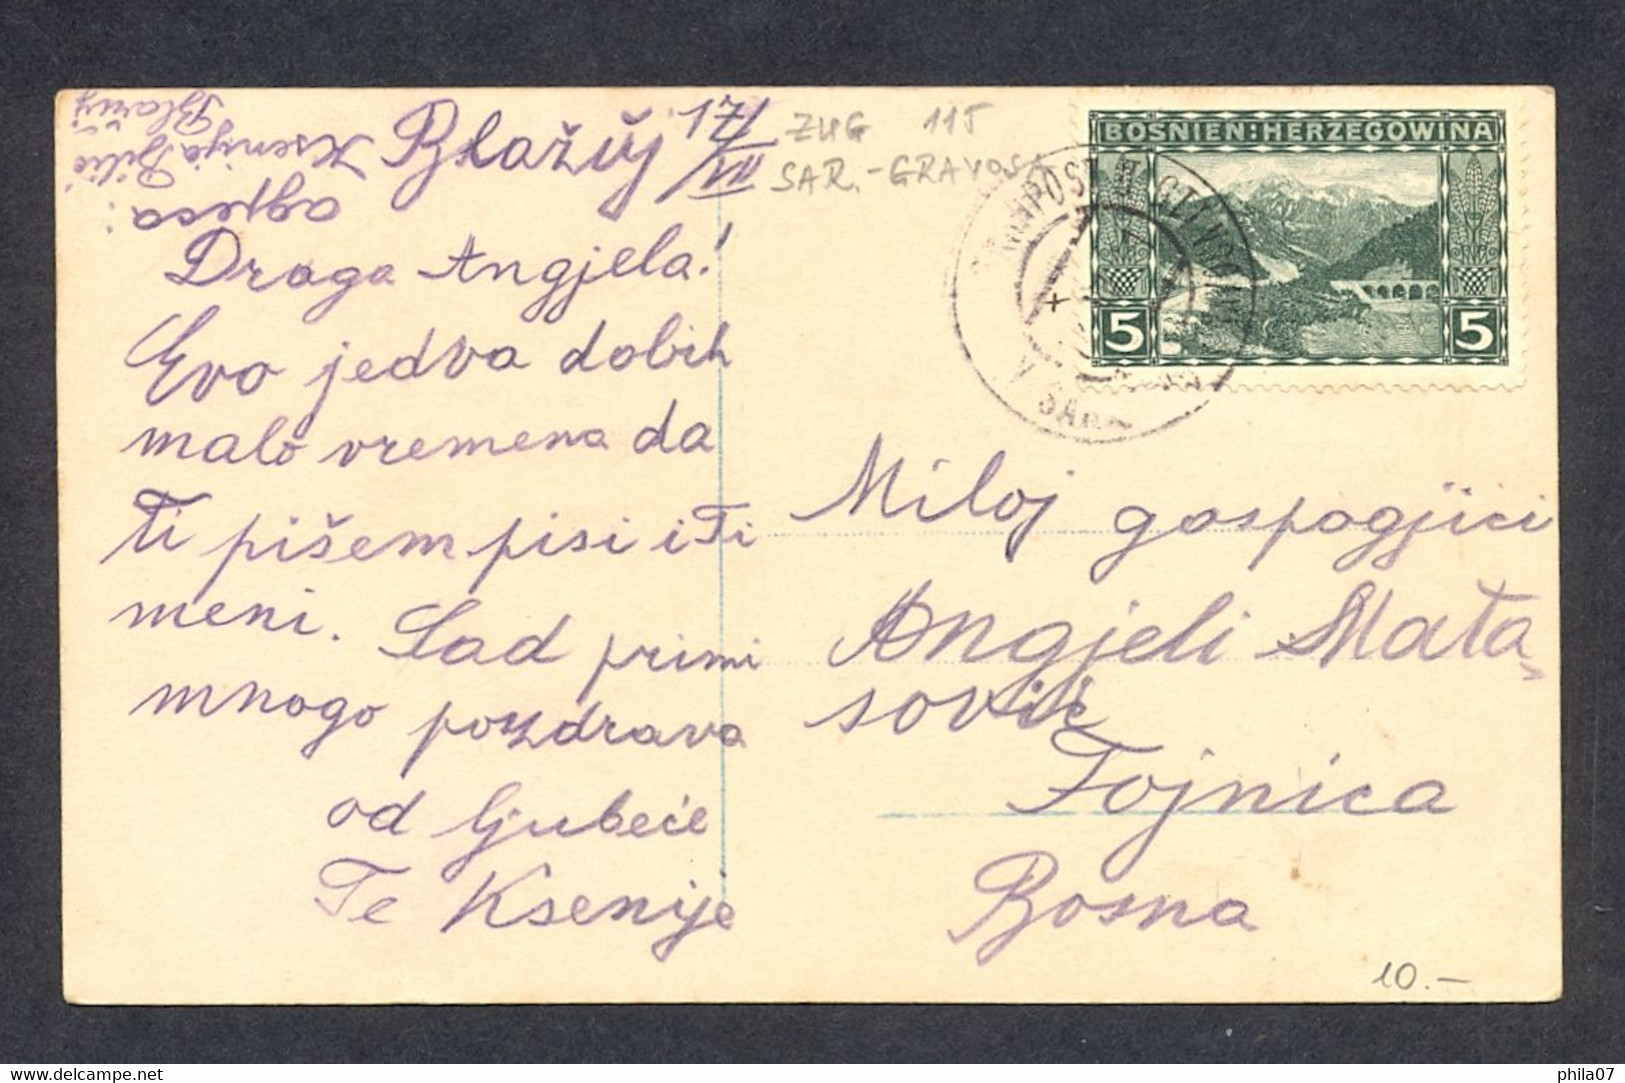 Blažuj 17/VIII
adresa:
Ksenija Bilić
Blažuj
Draga Angjela!
Evo jedva dobih
malo vremena da
Ti pišem pisi i Ti
meni. Sad primi
mnogo pozdrava
od ljubeće
Te Ksenije
ZUG 115
SAR.-GRAVOSA
BOSNIEN:HERZEGOWINA
5 5
SAR
Miloj gospogjici
Angjeli Mata-
sović
Fojnica
Bosna
10.-
delcampe.net
phila07